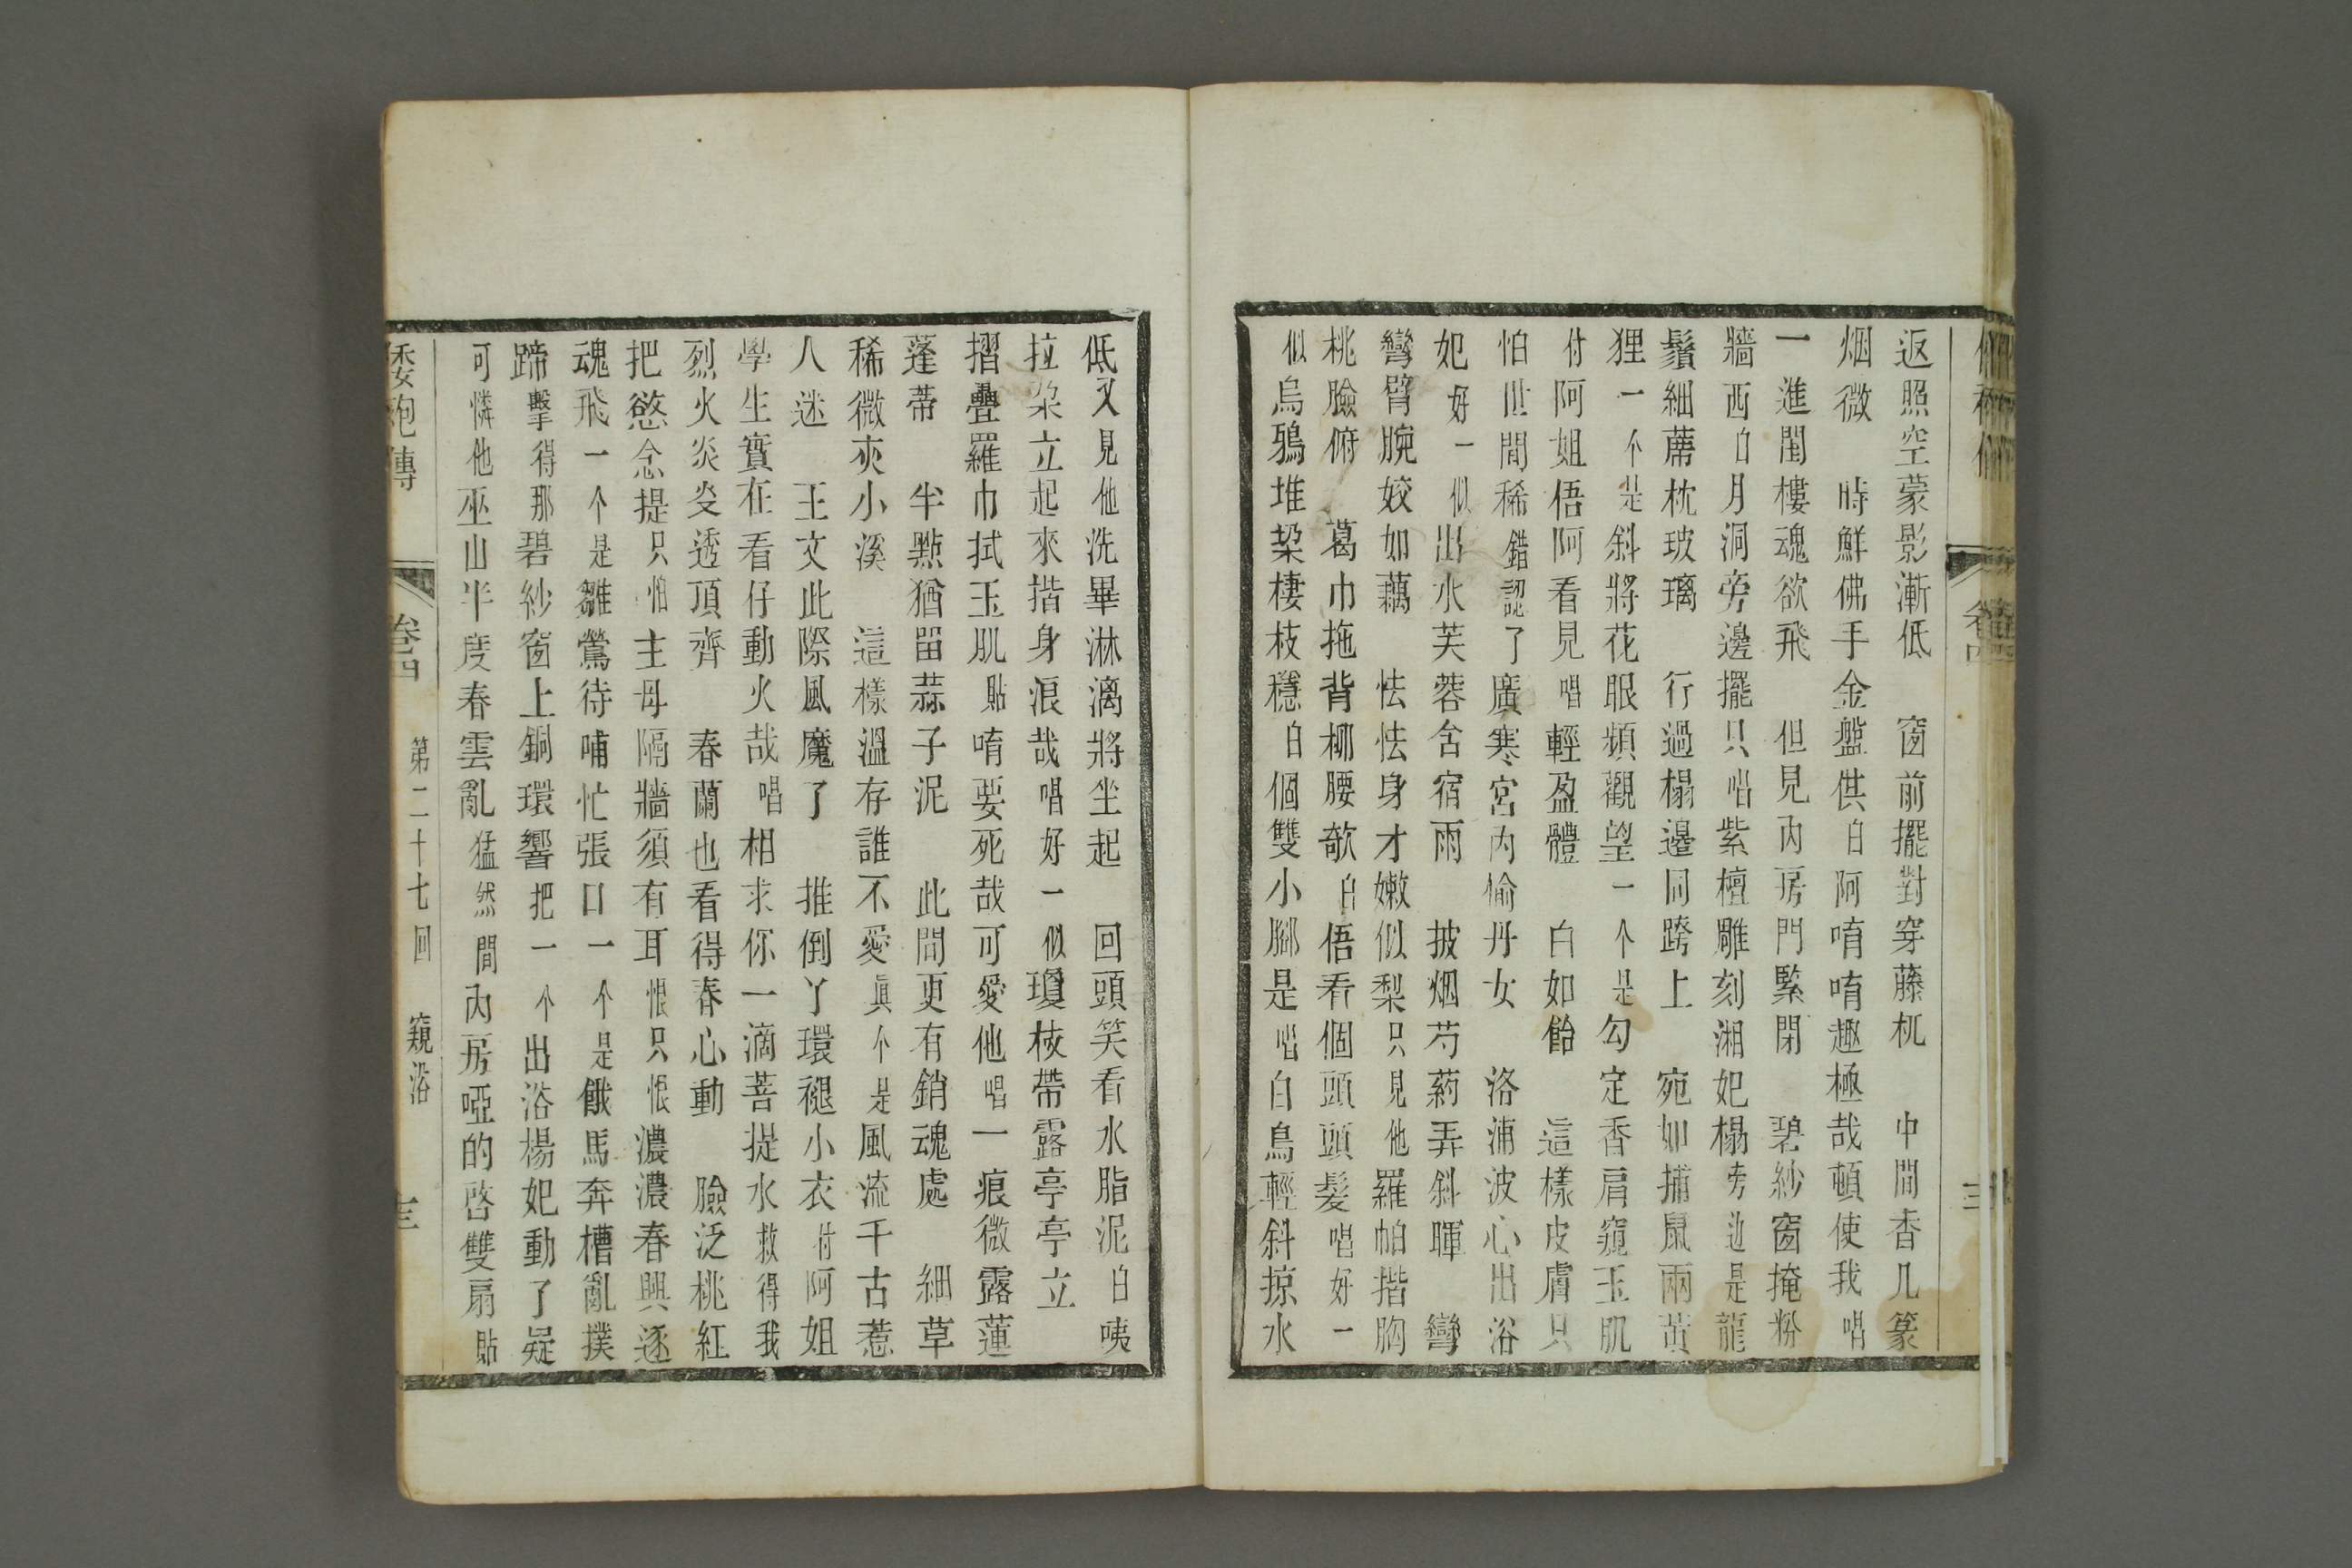 返照空蒙影漸低　窗前擺對穿藤杌　中間香几篆
烟微　時鮮佛手金盤供白阿唷唷趣極哉頓使我唱
一進閨樓魂欲飛　但見內房門緊閉　碧紗窗掩粉
牆西白月洞旁邊擺只唱紫檀雕刻湘妃榻旁邊是龍
鬚細蓆枕玻璃　行過榻邊同跨上　宛如捕鼠兩黃
狸一个是斜將花眼頻觀望一个是勾定香肩窺玉肌
付阿姐俉阿看見唱輕盈體　白如飴　這樣皮膚只
怕世間稀錯認了廣寒宮內偷丹女　洛浦波心出浴
妃好一似出水芙蓉含宿雨　披烟芍葯弄斜暉　彎
彎臂腕姣如藕　怯怯身才嫩似梨只見他羅帕揩胸
桃臉俯　葛巾拖背柳腰欹白俉看個頭頭髮唱好一
似烏鴉堆垜棲枝穩白個雙小腳是唱白鳥輕斜掠水
低又見他洗畢淋漓將坐起　回頭笑看水脂泥白咦
拉朶立起來揩身浪哉唱好一似瓊枝帶露亭亭立
摺疊羅巾拭玉肌貼唷要死哉可愛他唱一痕微露蓮
蓬蒂　半點猶留蒜子泥　此間更有銷魂處　細草
稀微夾小溪　這樣溫存誰不愛眞个是風流千古惹
人迷　王文此際風魔了　推倒丫環褪小衣付阿姐
學生實在看仔動火哉唱相求你一滴菩提水救得我
烈火炎炎透頂齊　春蘭也看得春心動　臉泛桃紅
把慾念提只怕主母隔牆須有耳恨只恨濃濃春興逐
魂飛一个是雛鶯待哺忙張口一个是餓馬奔槽亂撲
蹄擊得那碧紗窗上銅環響把一个出浴楊妃動了疑
可憐他巫山半度春雲亂猛然間內房啞的啓雙扇貼
倭袍傳　卷四　第二十七回　窺浴